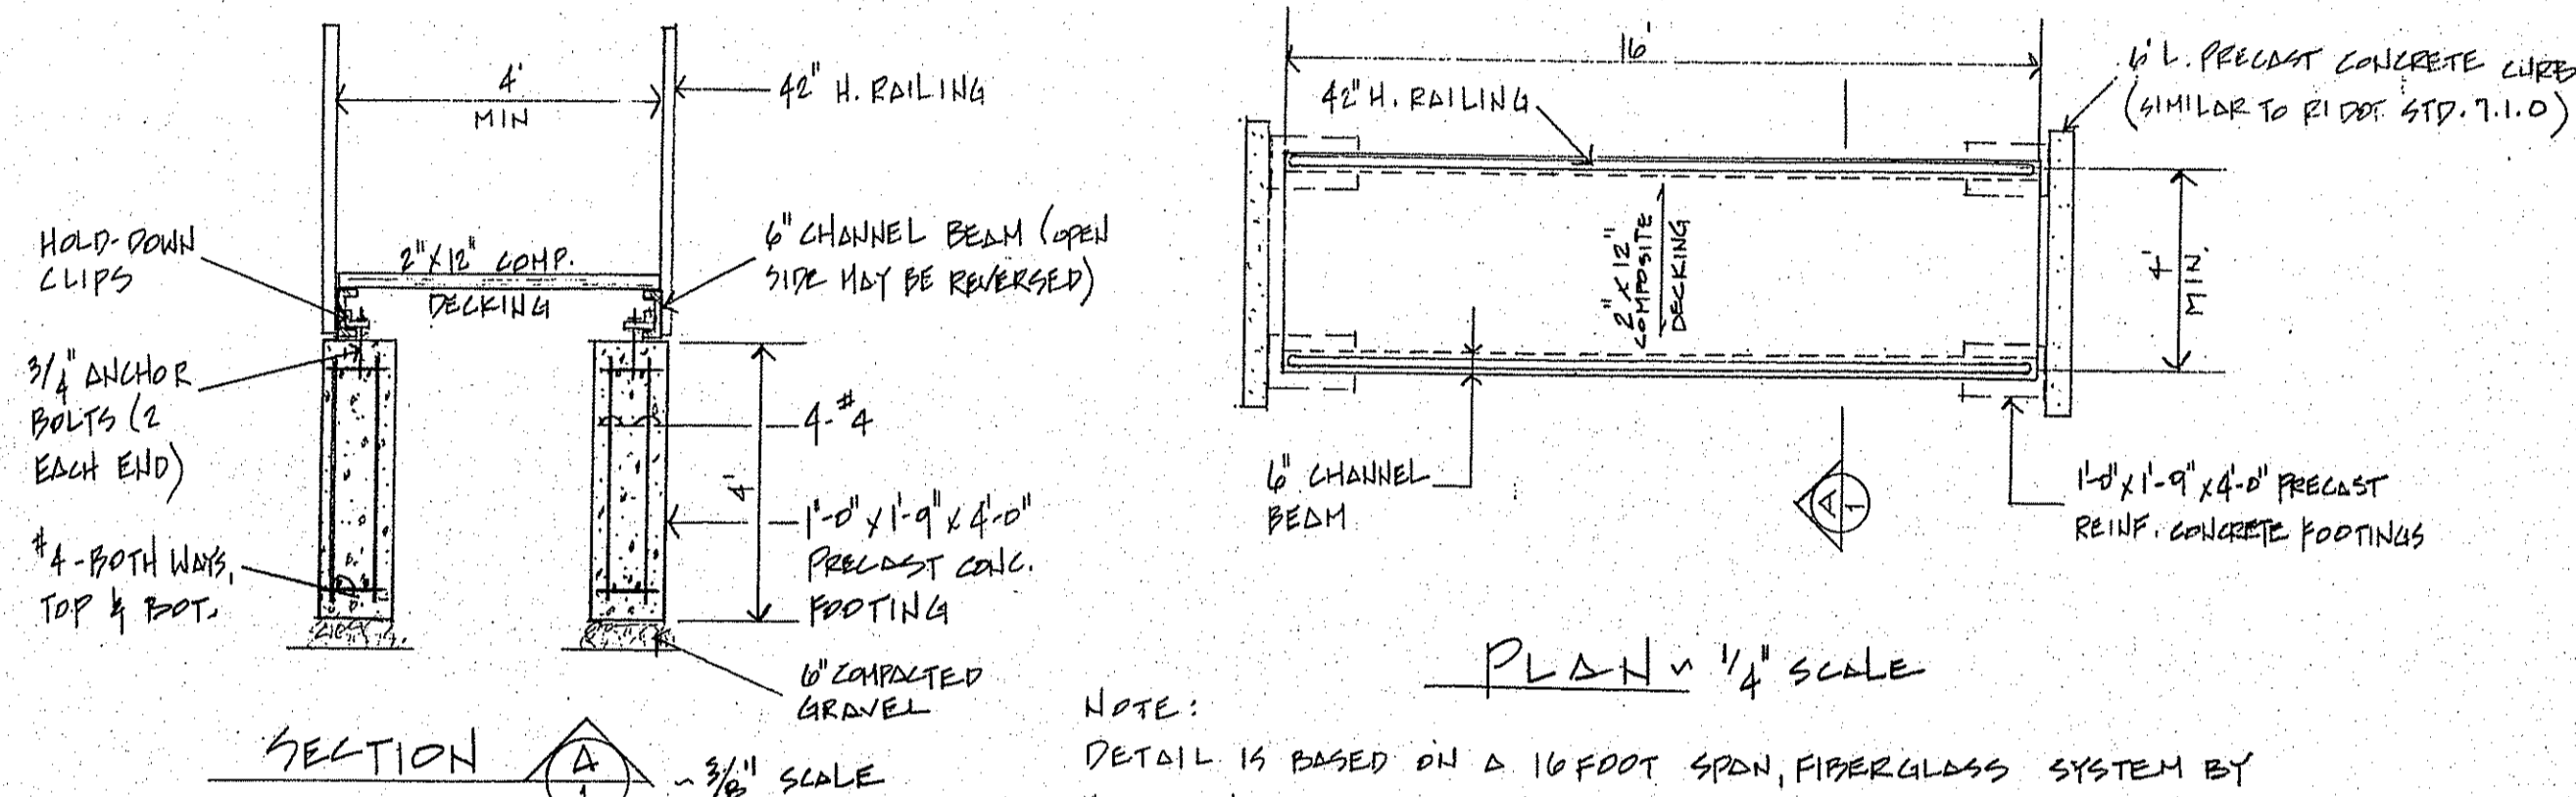 4'
MIN
42" H. RAILING
HOLD-DOWN
CLIPS
2"X12" COMP.
DECKING
6" CHANNEL BEAM (OPEN
SIDE MAY BE REVERSED)
3/4" ANCHOR
BOLTS (2
EACH END)
4-#4
4'
1'-0" x 1'-9" x 4'-0"
PRECAST CONC.
FOOTING
#4-BOTH WAYS,
TOP & BOT.
6" COMPACTED
GRAVEL
SECTION
A
1
~ 3/8" SCALE
16'
42" H. RAILING
6' L. PRECAST CONCRETE CURB
(SIMILAR TO RIDOT STD. 7.1.0)
2" X 12"
COMPOSITE
DECKING
4'
MIN.
6" CHANNEL
BEAM
A
1
1'-0" x 1'-9" x 4'-0" PRECAST
REINF. CONCRETE FOOTINGS
PLAN ~ 1/4" SCALE
NOTE:
DETAIL IS BASED ON A 16 FOOT SPAN, FIBERGLASS SYSTEM BY